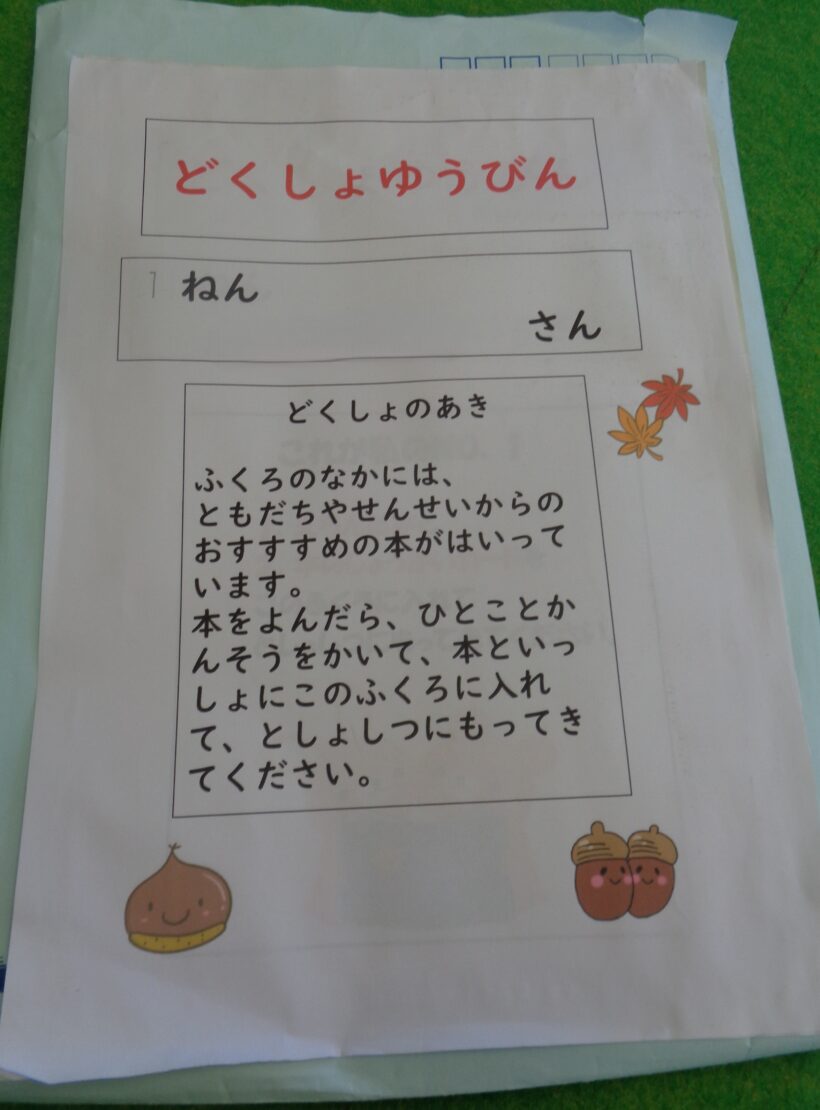 どくしょゆうびん
1 ねん
さん
どくしょのあき
ふくろのなかには、
ともだちやせんせいからの
おすすすめの本がはいって
います。
本をよんだら、ひとことか
んそうをかいて、本といっ
しょにこのふくろに入れ
て、としょしつにもってき
てください。